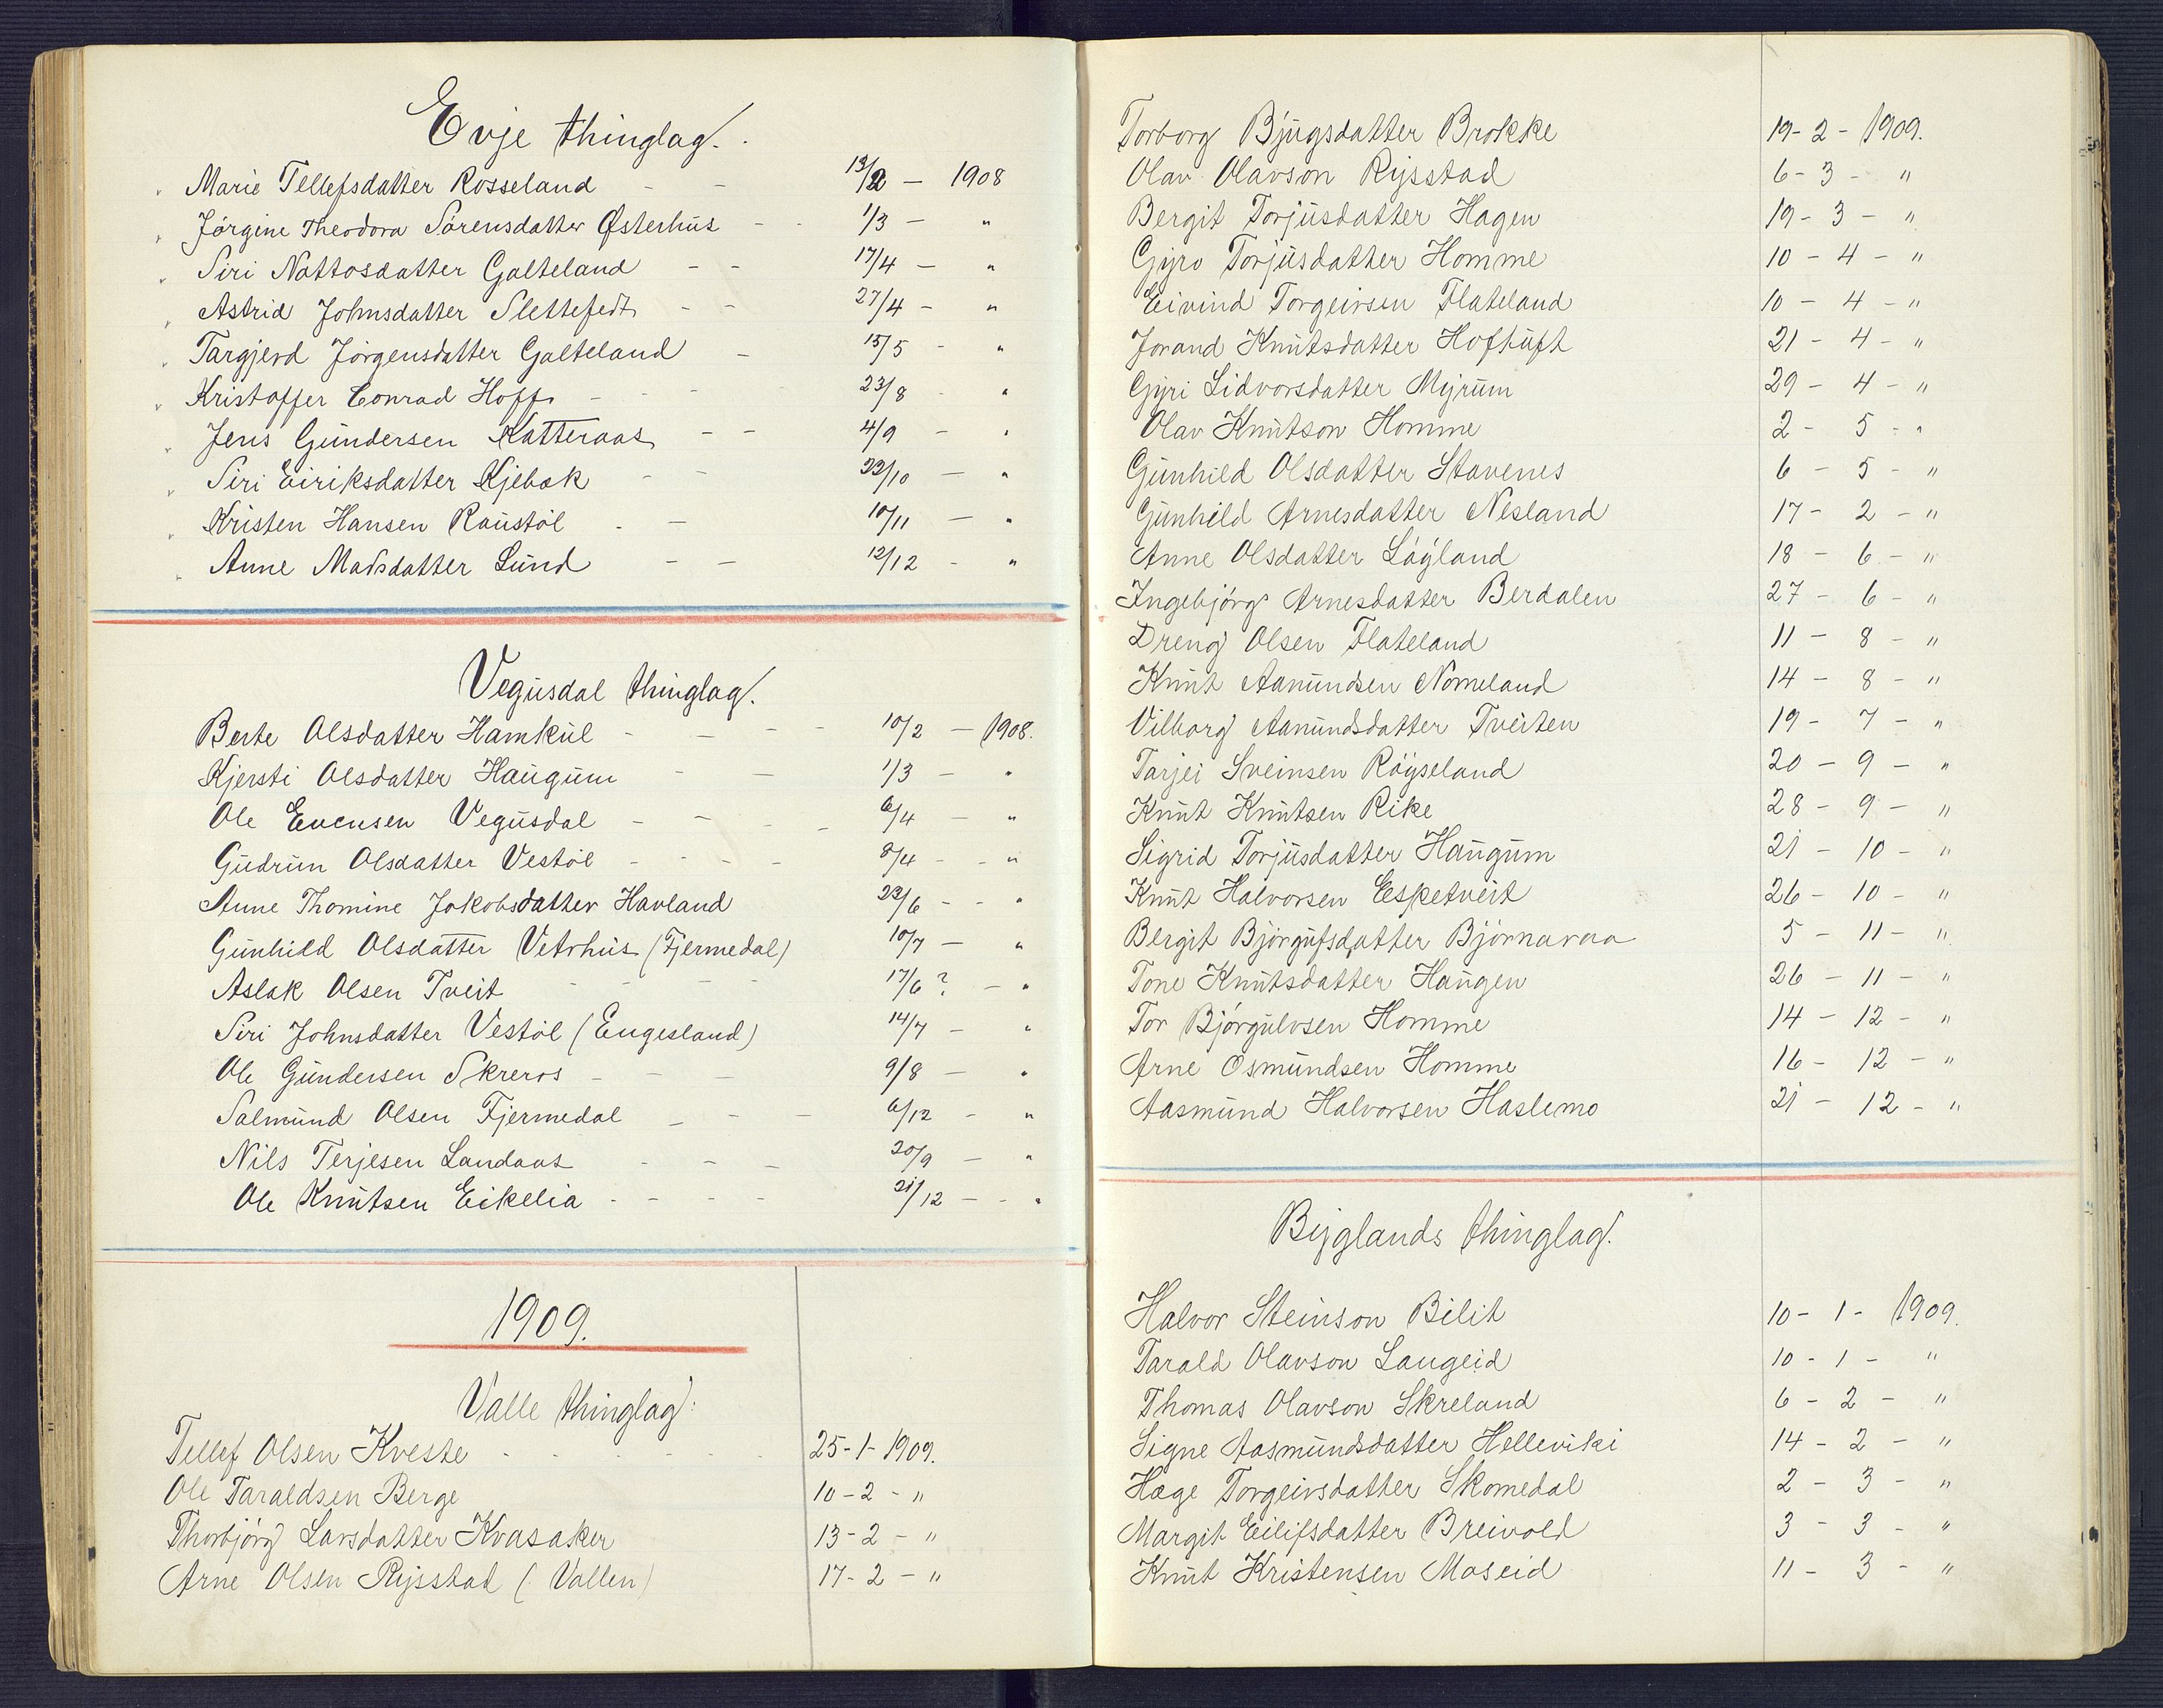 Evje thinglag.
Marie Tellefsdatter Rosseland - - 13/2 - 1908
Jörgine Theodora Sörensdatter Østerhus - - 1/3 - "
Siri Nattosdatter Galteland - - 17/4 - "
Astrid Johnsdatter Slettefedt - - 27/4 - "
Targjerd Jörgensdatter Galteland - 15/5 - "
Kristoffer Conrad Hoff - - - 23/8 - "
Jens Gundersen Katteraas - - 4/9 - "
Siri Eiriksdatter Kjebæk - - 22/10 - "
Kristen Hansen Raustöl - - 10/11 - "
Anne Madsdatter Lund - - 12/12 - "
Vegusdal thinglag.
Berte Olsdatter Hamkul - - - - 10/2 - 1908.
Kjersti Olsdatter Haugum - - 1/3 - "
Ole Evensen Vegusdal - - - - 6/4 - "
Gudrun Olsdatter Vestöl - - - - 8/4 - - "
Anne Thomine Jakobsdatter Havland 23/6 - - "
Gunhild Olsdatter Vetrhus (Fjermedal) 10/7 - "
Aslak Olsen Tveit - - - - 17/6? - "
Siri Johnsdatter Vestöl (Engesland) 14/7 - "
Ole Gundersen Skreros - - - 9/8 - "
Salmund Olsen Fjermedal - - - 6/12 - "
Nils Terjesen Landaas - - - 20/9 - "
Ole Knutsen Eikelia - - - - 21/12 - - "
1909.
Valle thinglag:
Tellef Olsen Kveste - - - - 25-1-1909.
Ole Taraldsen Berge 10-2-"
Thorbjörg Larsdatter Kvasaker 13-2-"
Arne Olsen Rysstad (Vallen) 17-2-"
Torborg Bjugsdatter Brokke 19-2-1909.
Olav Olavson Rysstad 6-3-"
Bergit Torjusdatter Hagen 19-3-"
Gyro Torjusdatter Homme 10-4-"
Eivind Torgeirsen Flateland 10-4-"
Jorand Knutsdatter Hoftuft 21-4-"
Gyri Lidvorsdatter Myrum 29-4-"
Olav Knutson Homme 2-5-"
Gunhild Olsdatter Stavenes 6-5-"
Gunhild Arnesdatter Nesland 17-2-"
Anne Olsdatter Lögland 18-6-"
Ingebjörg Arnesdatter Berdalen 27-6-"
Dreng Olsen Flateland 11-8-"
Knut Aanundsen Nomeland 14-8-"
Vilborg Aanundsdatter Tveiten 19-7-"
Tarjei Sveinsen Röyseland 20-9-"
Knut Knutsen Rike 28-9-"
Sigrid Torjusdatter Haugum 21-10-"
Knut Halvorsen Espetveit 26-10-"
Bergit Björgufsdatter Björnaraa 5-11-"
Tone Knutsdatter Haugen 26-11-"
Tor Björgulvsen Homme 14-12-"
Arne Osmundsen Homme 16-12-"
Aasmund Halvorsen Haslemo 21-12-"
Byglands thinglag.
Halvor Steinson Bilit 10-1-1909.
Tarald Olavson Langeid 10-1-"
Thomas Olavson Skreland 6-2-"
Signe Aasmundsdatter Helleviki 14-2-"
Hæge Torgeirsdatter Skomedal 2-3-"
Margit Eilifsdatter Breivold 3-3-"
Knut Kristensen Moseid 11-3-"